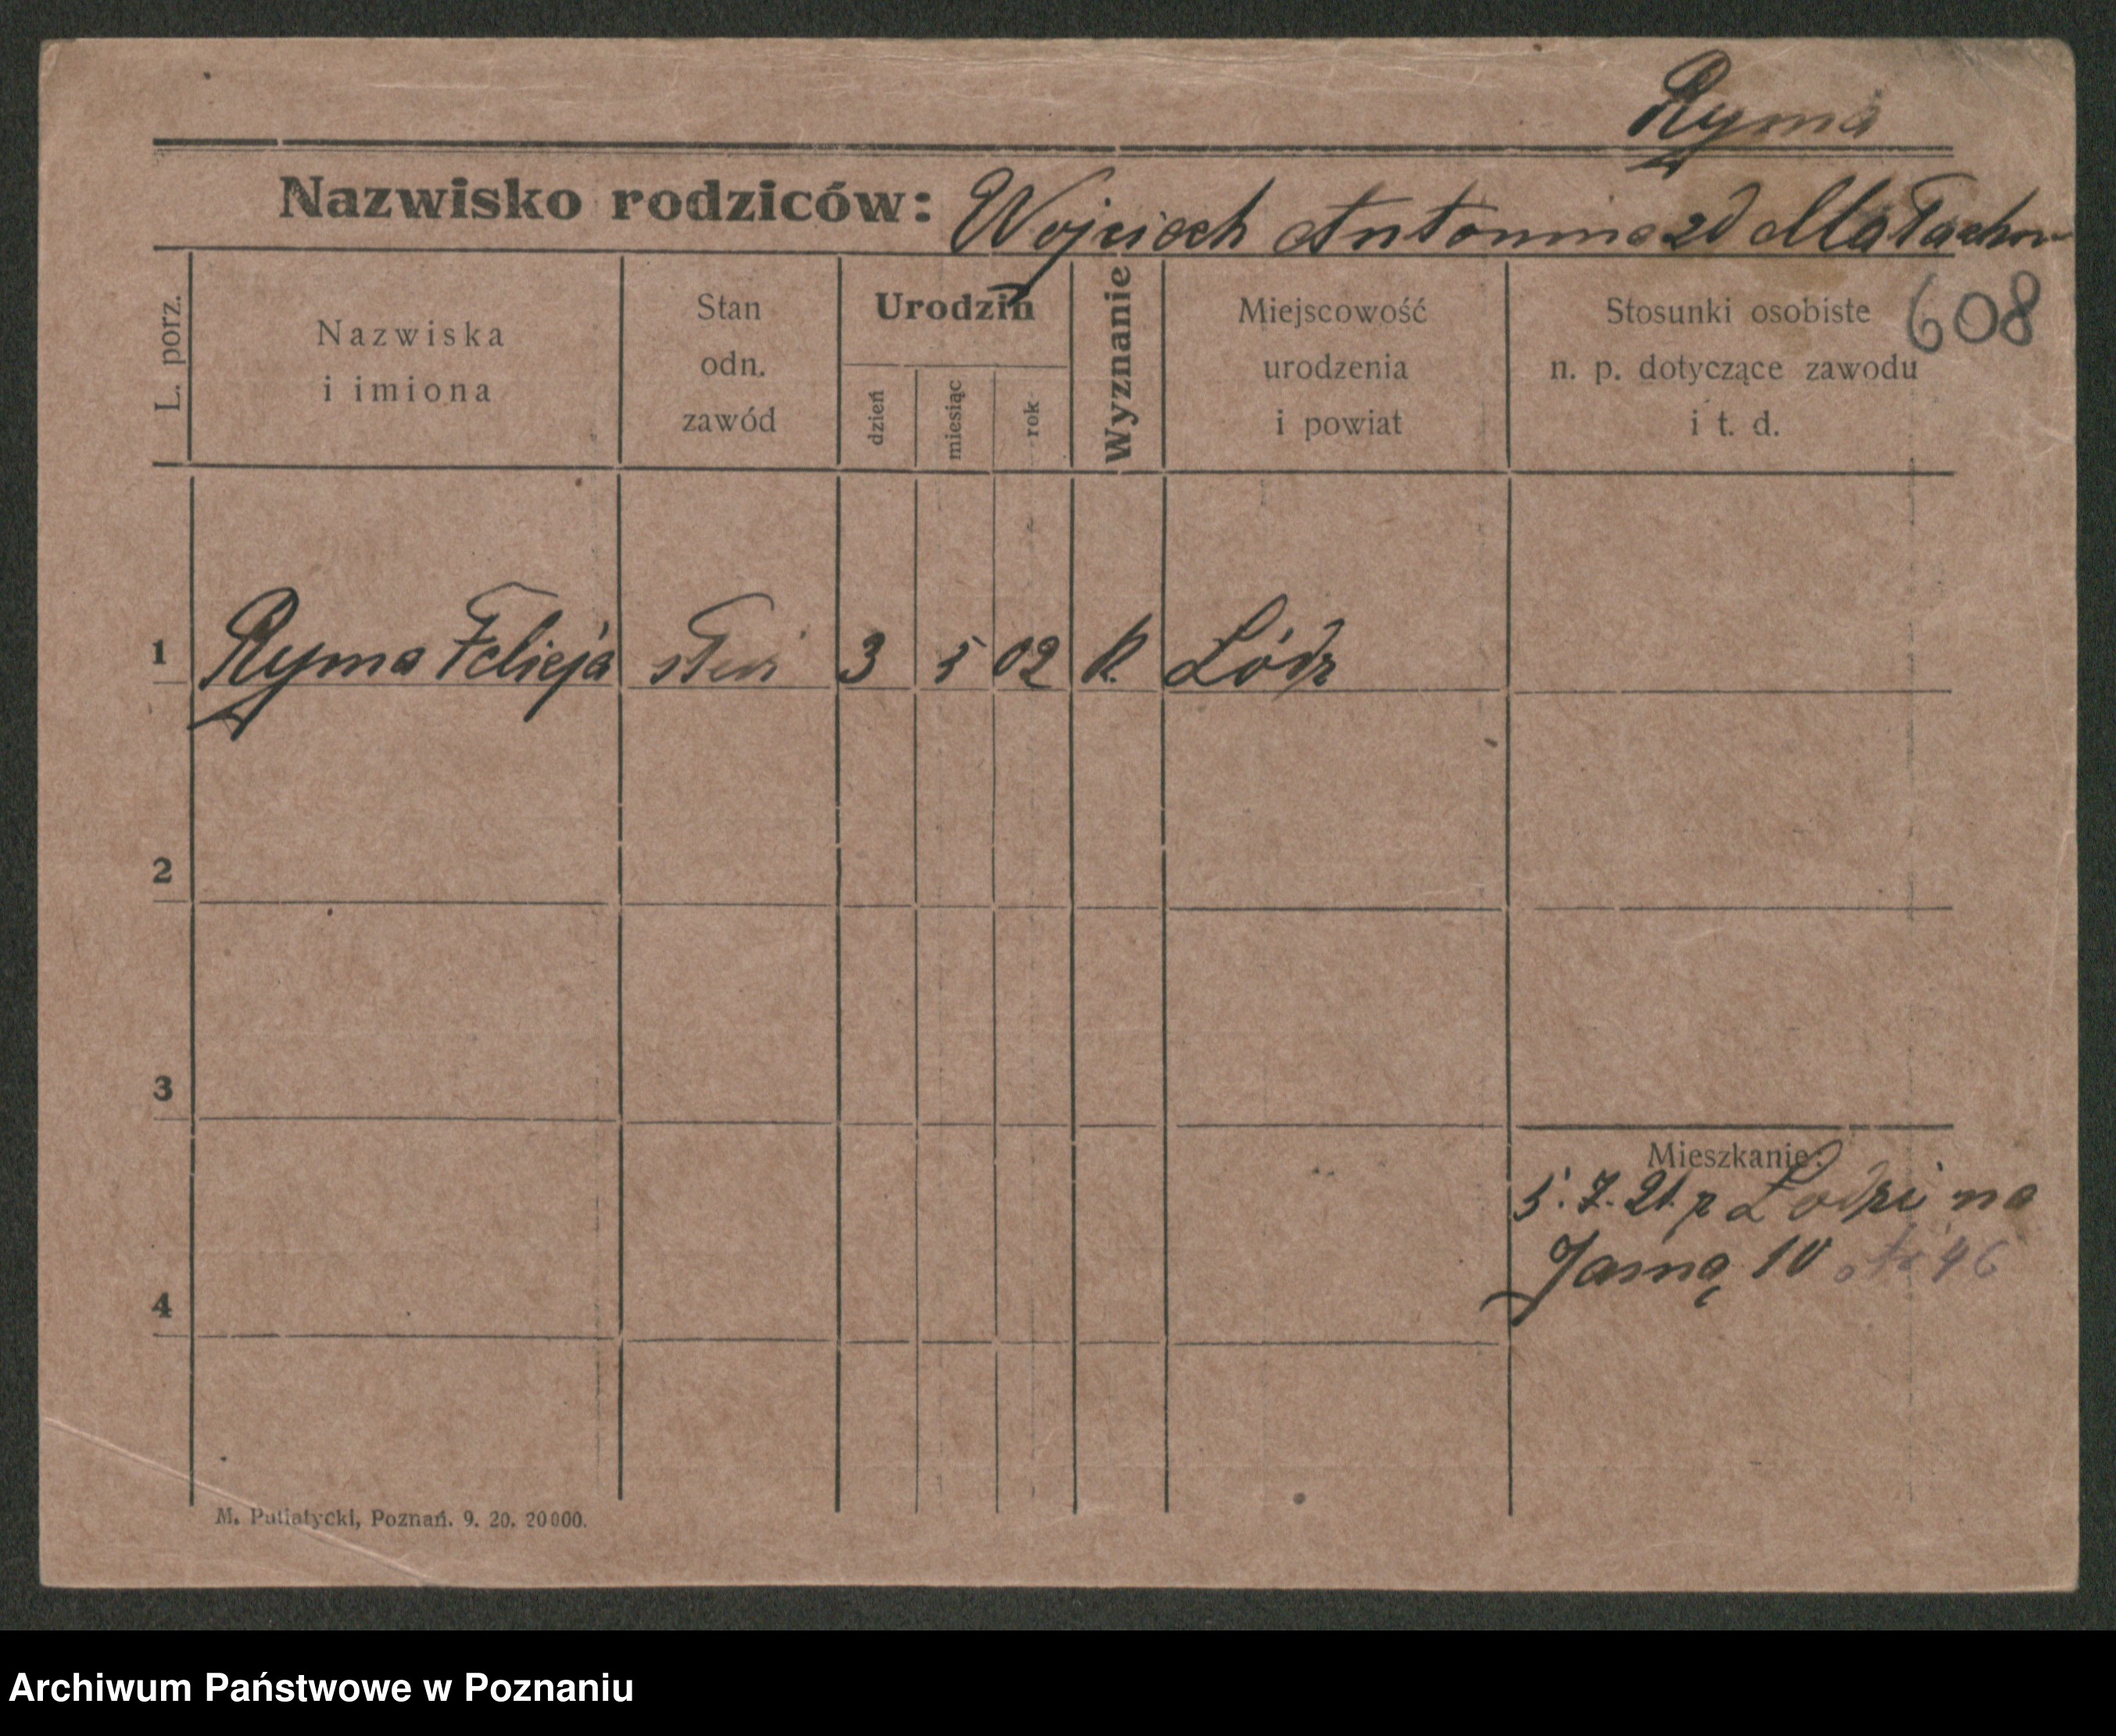 Ryma
Nazwisko rodziców: Wojciech Antonina zd Małachow
608
L. porz.
Nazwiska
i imiona
Stan
odn.
zawód
Urodzin
dzień
miesiąc
rok
Wyznanie
Miejscowość
urodzenia
i powiat
Stosunki osobiste
n. p. dotyczące zawodu
i t. d.
1 Ryma Felicja 3 5 02 k. Łódz
2
3
4
Mieszkanie:
5.7.21. z Łodzi na
Jasną 10 46
M. Putiatycki, Poznań. 9. 20. 20000.
Archiwum Państwowe w Poznaniu